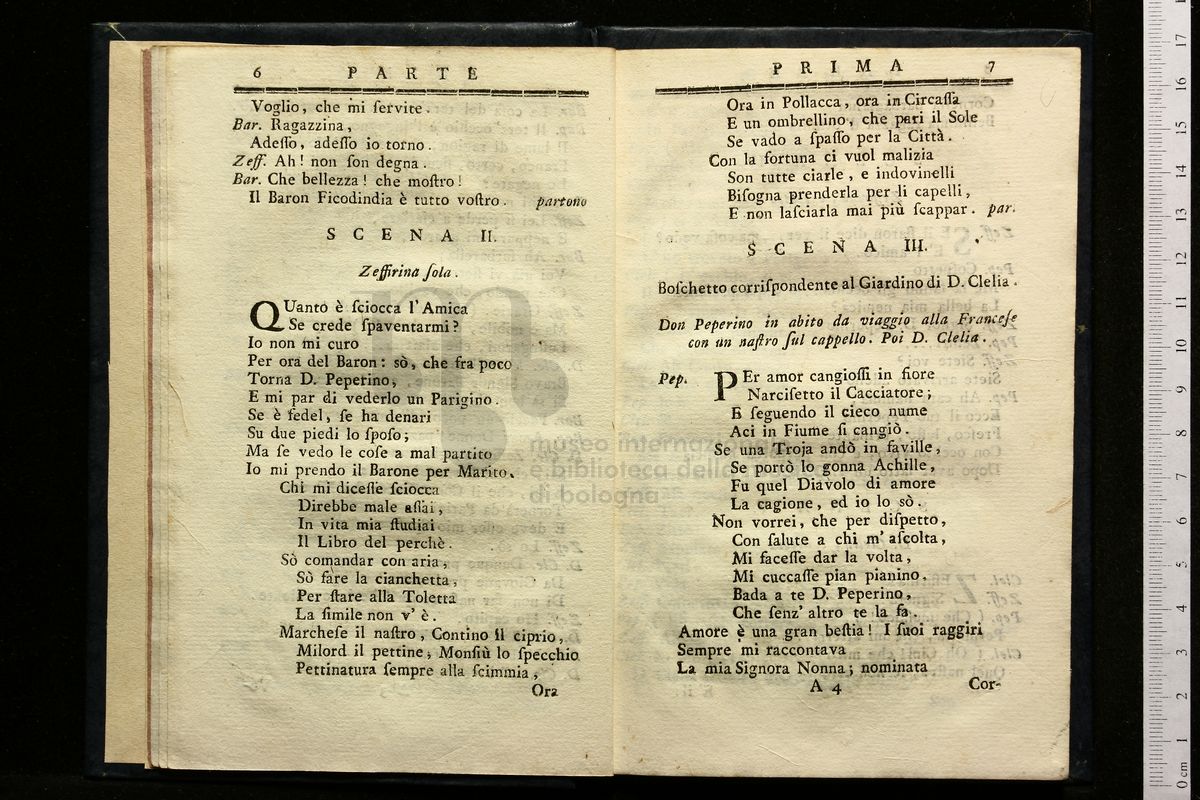 6 PARTE
Voglio, che mi ſervite.
Bar. Ragazzina,
Adeſſo, adeſſo io torno.
Zeff. Ah! non ſon degna.
Bar. Che bellezza! che moſtro!
Il Baron Ficodindia è tutto voſtro. partono
SCENA II.
Zeffirina ſola.
QUanto è ſciocca l'Amica
Se crede ſpaventarmi?
Io non mi curo
Per ora del Baron: sò, che fra poco
Torna D. Peperino,
E mi par di vederlo un Parigino.
Se è fedel, ſe ha denari
Su due piedi lo ſpoſo;
Ma ſe vedo le coſe a mal partito
Io mi prendo il Barone per Marito.
Chi mi diceſſe ſciocca
Direbbe male aſſai,
In vita mia ſtudiai
Il Libro del perchè
Sò comandar con aria,
Sò fare la cianchetta,
Per ſtare alla Toletta
La ſimile non v'è.
Marcheſe il naſtro, Contino il ciprio,
Milord il pettine, Monſiù lo ſpecchio
Pettinatura ſempre alla ſcimmia,
Ora
PRIMA 7
Ora in Pollacca, ora in Circaſſa
E un ombrellino, che pari il Sole
Se vado a ſpaſſo per la Città.
Con la fortuna ci vuol malizia
Son tutte ciarle, e indovinelli
Biſogna prenderla per li capelli,
E non laſciarla mai più ſcappar. par.
SCENA III.
Boſchetto corriſpondente al Giardino di D. Clelia.
Don Peperino in abito da viaggio alla Franceſe
con un naſtro ſul cappello. Poi D. Clelia.
Pep. PEr amor cangioſſi in fiore
Narciſetto il Cacciatore;
E ſeguendo il cieco nume
Aci in Fiume ſi cangiò.
Se una Troja andò in faville,
Se portò lo gonna Achille,
Fu quel Diavolo di amore
La cagione, ed io lo sò.
Non vorrei, che per diſpetto,
Con ſalute a chi m'aſcolta,
Mi faceſſe dar la volta,
Mi cuccaſſe pian pianino.
Bada a te D. Peperino,
Che ſenz'altro te la fa.
Amore è una gran beſtia! I ſuoi raggiri
Sempre mi raccontava
La mia Signora Nonna; nominata
A 4 Cor-
museo internazionale
e biblioteca della musica
di bologna
0 cm 1 2 3 4 5 6 7 8 9 10 11 12 13 14 15 16 17